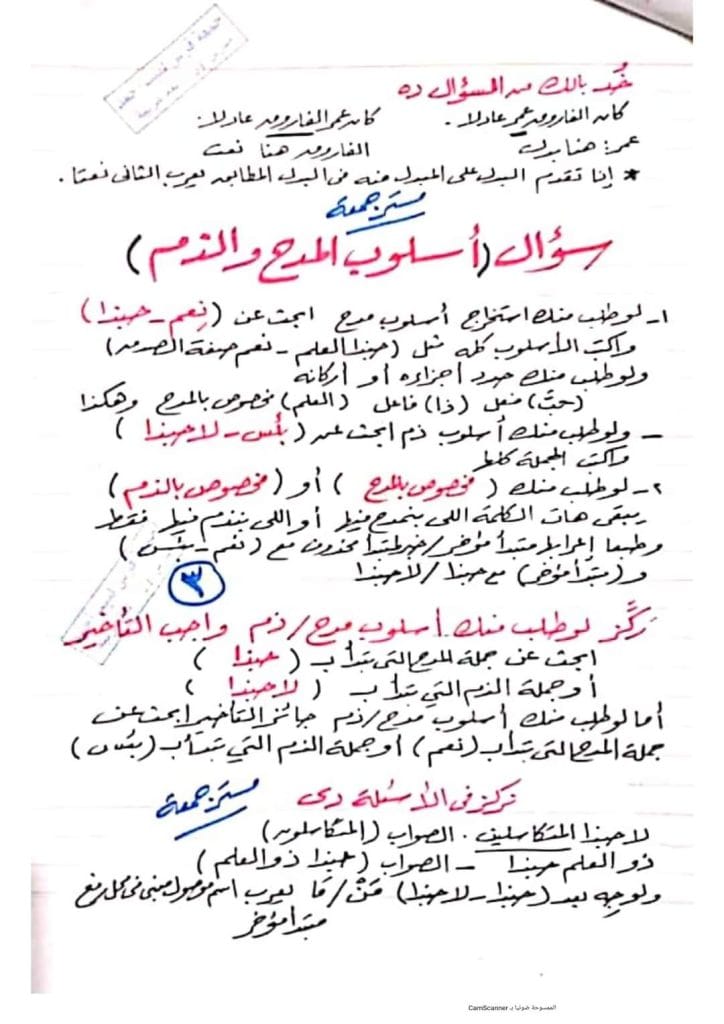 خُد بالك من السؤال ده
كان الفاروق عمر عادلا. كان عمر الفاروق عادلا.
عمر: هنا بدل الفاروق هنا نعت
* إذا تقدم البدل على المبدل منه في البدل المطابق يعرب الثاني نعتا.
مستر جمعة
سؤال (أسلوب المدح والذم)
١- لو طلب منك استخراج أسلوب مدح ابحث عن (نِعم - حبذا)
واكتب الأسلوب كله مثل (حبذا العلم - نعم صفة الصدق)
ولو طلب منك حدد أجزاءه أو أركانه
(حبَّ) فعل (ذا) فاعل (العلم) مخصوص بالمدح وهكذا
- ولو طلب منك أسلوب ذم ابحث عن (بئس - لا حبذا)
واكتب الجملة كلها
٢- لو طلب منك (مخصوص بالمدح) أو (مخصوص بالذم)
يبقى هات الكلمة اللي بنمدح فيها أو اللي بنذم فيها فقط
وطبعا إعرابها مبتدأ مؤخر / خبر لمبتدأ محذوف مع (نعم - بئس)
و (مبتدأ مؤخر) مع حبذا / لا حبذا
٣
ركَّز لو طلب منك أسلوب مدح / ذم واجب التأخير
ابحث عن جملة المدح التي تبدأ ب (حبذا)
أو جملة الذم التي تبدأ ب (لا حبذا)
أما لو طلب منك أسلوب مدح / ذم جائز التأخير ابحث عن
جملة المدح التي تبدأ ب (نعم) أو جملة الذم التي تبدأ ب (بئس)
نركز في الأسئلة دي مستر جمعة
لا حبذا المتكاسلين. الصواب (المتكاسلون)
ذو العلم حبذا - الصواب (حبذا ذو العلم)
ولو جه بعد (حبذا - لا حبذا) مَنْ / مَا يعرب اسم موصول مبني في محل رفع
مبتدأ مؤخر
الممسوحة ضوئيا بـ CamScanner